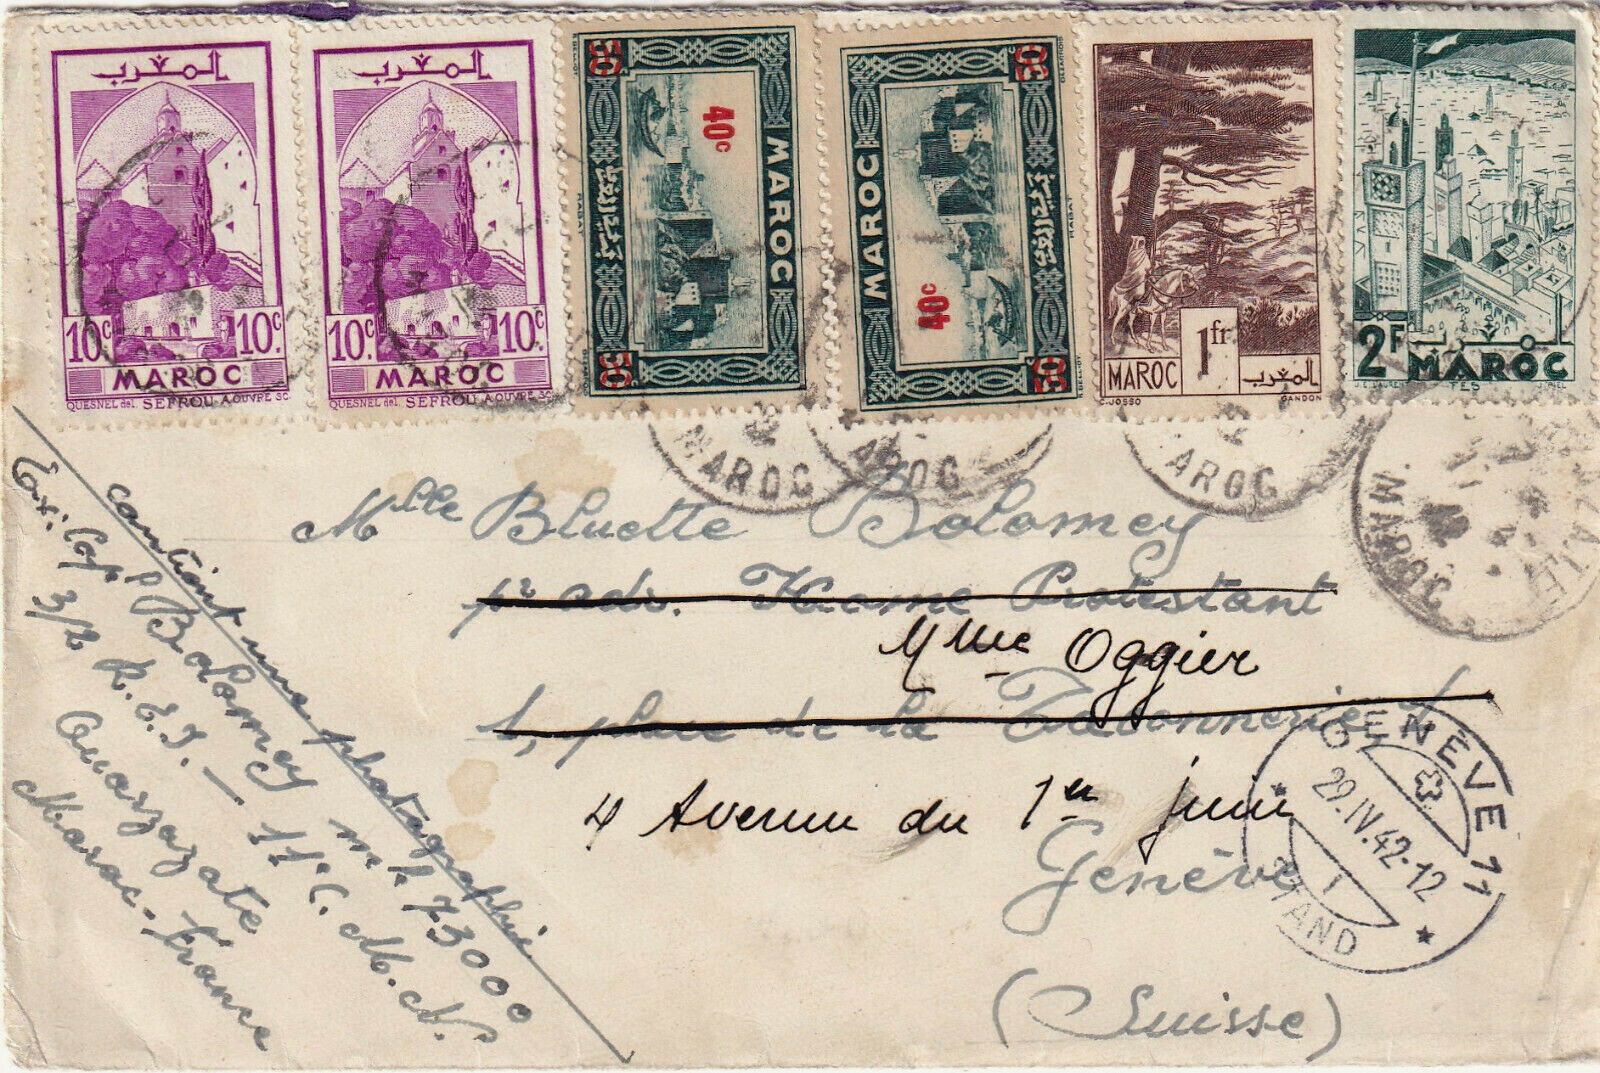 المغرب
10c
10c.
MAROC
QUESNEL del. SEFROU A.OUVRE SC.
المغرب
10c
10c.
MAROC
QUESNEL del. SEFROU A.OUVRE SC.
50c
40c
50c
MAROC
RABAT
50c
40c
50c
MAROC
RABAT
1fr
MAROC
المغرب
C.JOSSO GANDON
2F MAROC
J.E. LAURENT FES J. PIEL
MAROC
MAROC
MAROC
MAROC
Mlle Bluette Bolomey
pr adr. Home Protestant
Mme Oggier
1, place de la Taconnerie 1
4 Avenue du 1er juin
Genève
(Suisse)
GENÈVE 11
29.IV.42-12
STAND
contient une photographie
Exp: Cap P Bolomey mle 73000
3/2 R.E.I. — 11e C.M.M.
Ouarzazate
Maroc-France